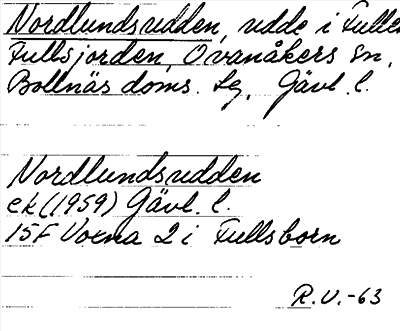 Nordlundsudden, udde i Fullen
Fullsjorden, Ovanåkers sn,
Bollnäs doms. sg, Gävl. l.
Nordlundsudden
ek (1959) Gävl. l.
15F Voxna 2 i Fullsborn
R.V.-63